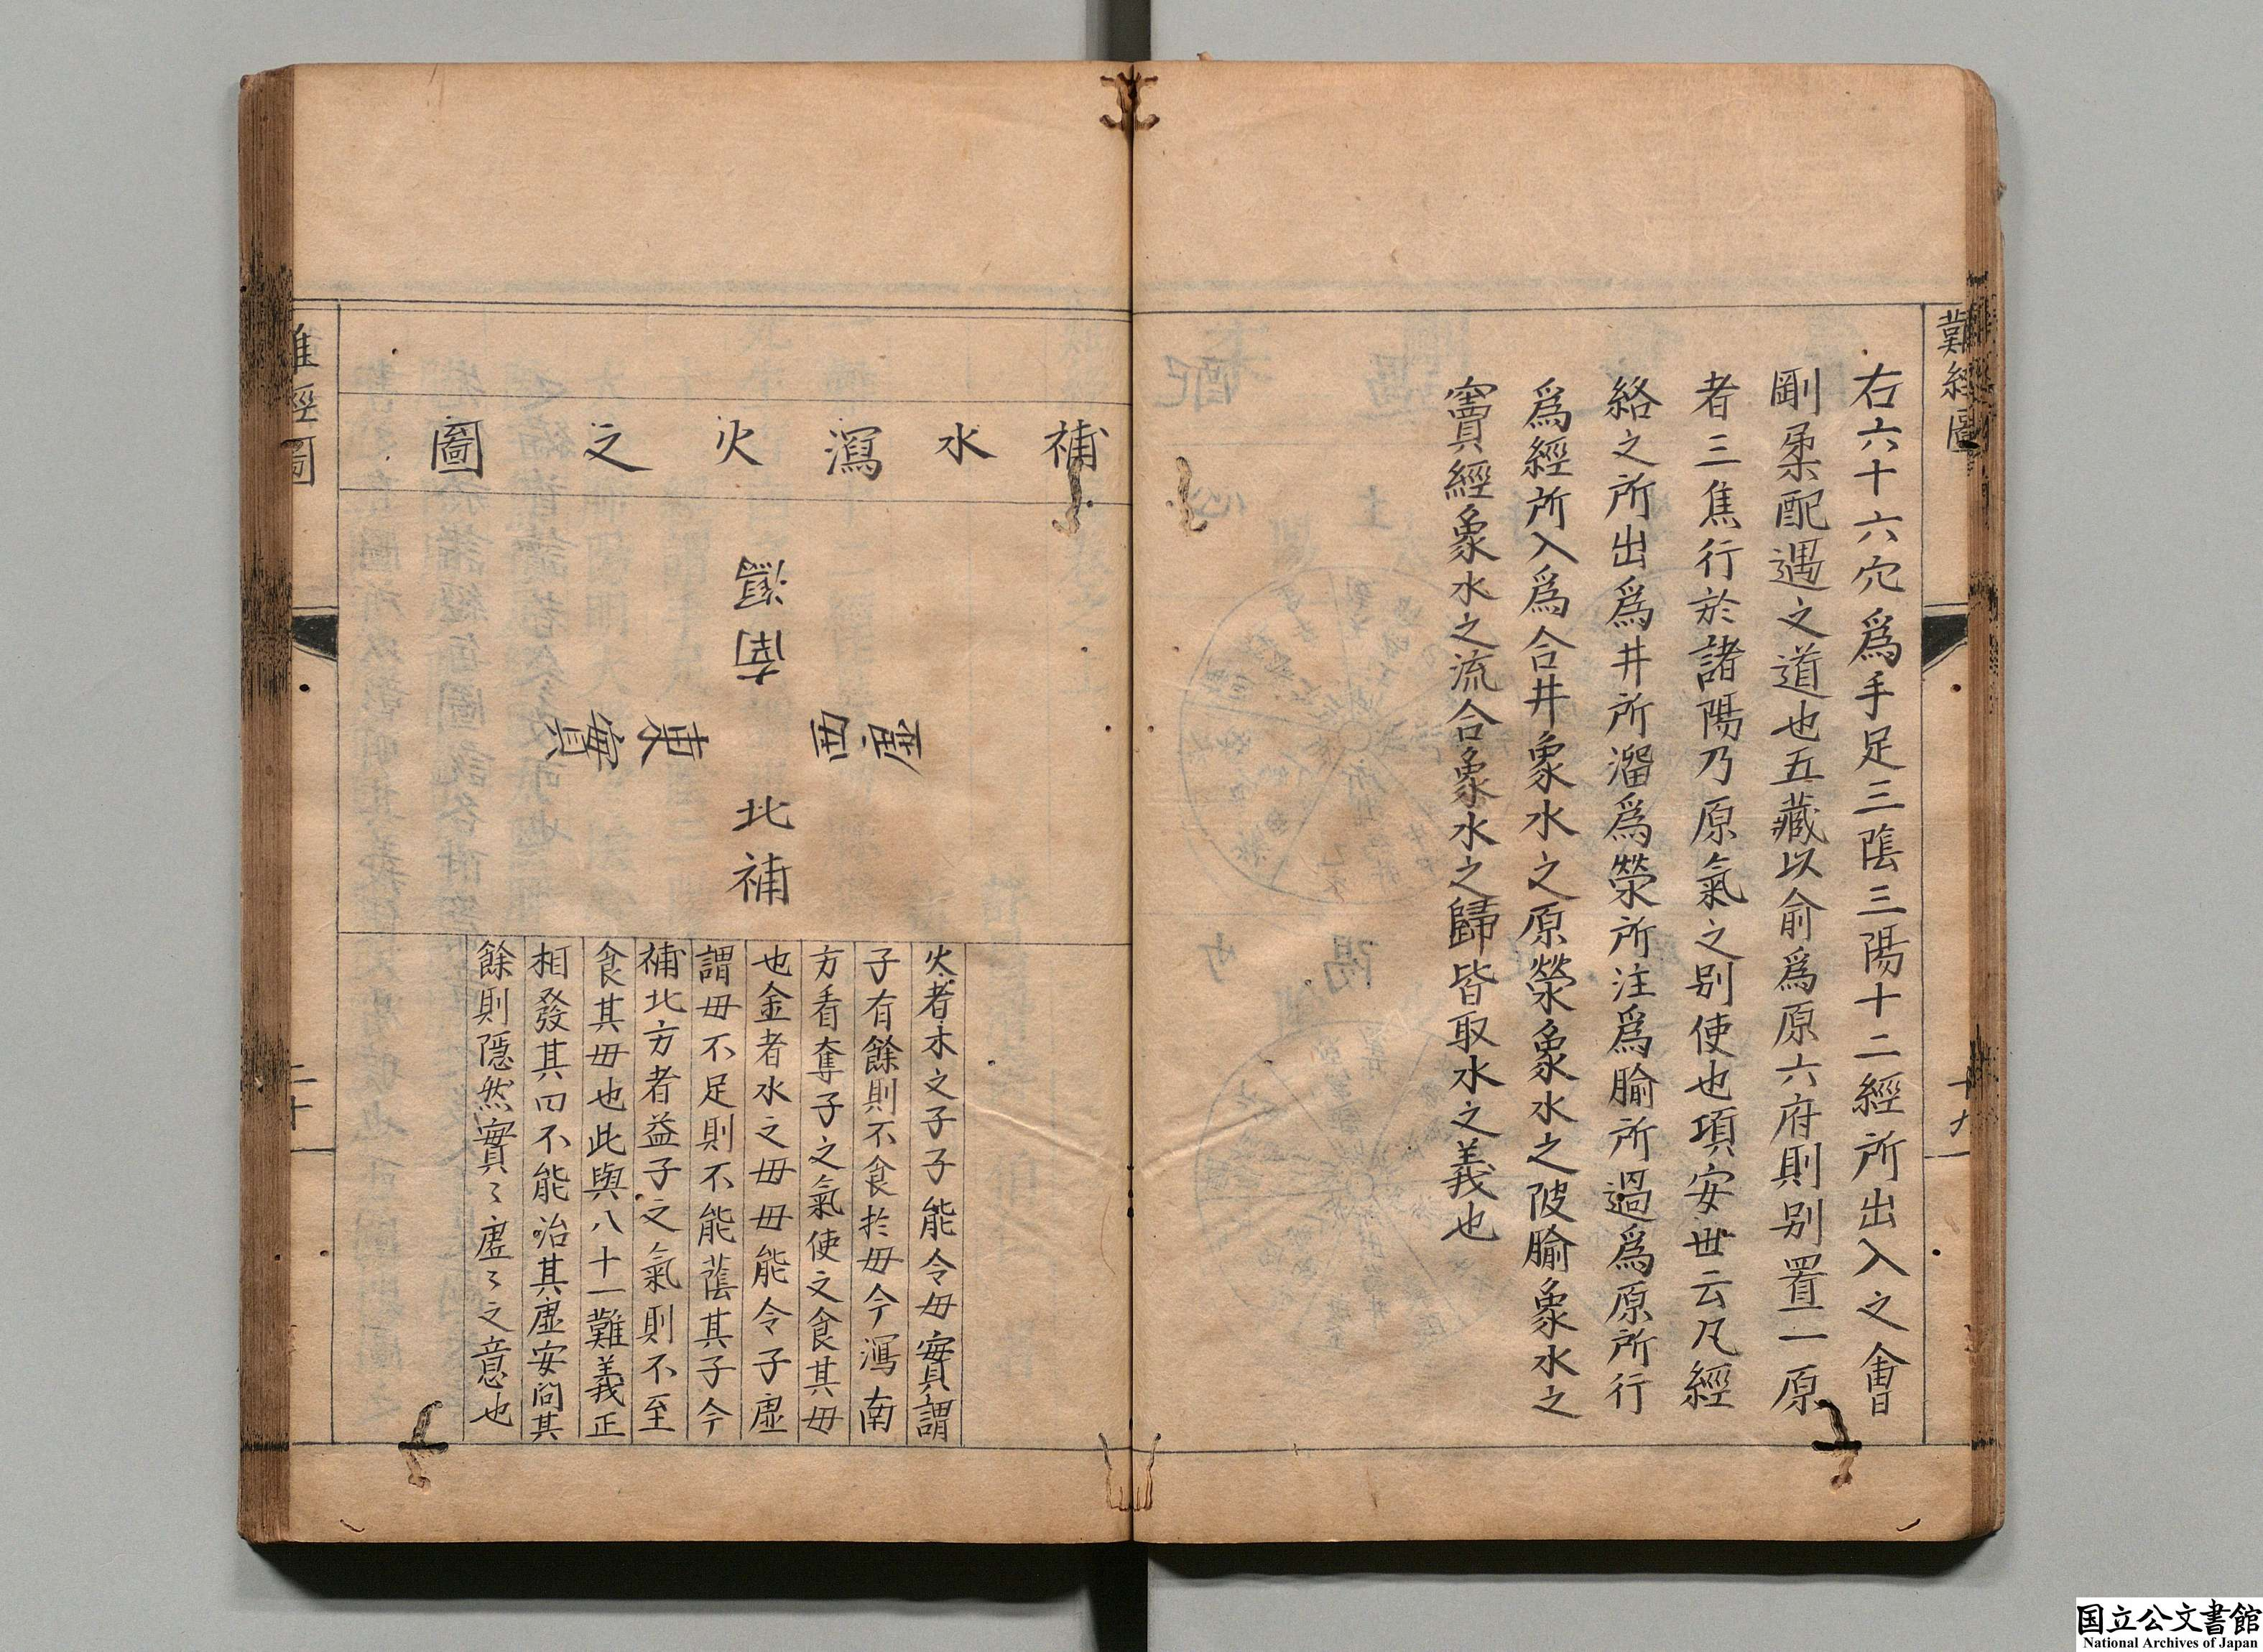 難經圖
十九
右六十六穴爲手足三陰三陽十二經所出入之會
剛柔配遇之道也五藏以俞爲原六府則别置一原
者三焦行於諸陽乃原氣之别使也項安世云凡經
絡之所出爲井所溜爲滎所注爲腧所過爲原所行
爲經所入爲合井象水之原滎象水之陂腧象水之
竇經象水之流合象水之歸皆取水之義也
補水瀉火之圖
瀉南
西虛
東實
北補
火者木之子子能令母實謂
子有餘則不食於母今瀉南
方者奪子之氣使之食其母
也金者水之母母能令子虛
謂母不足則不能蔭其子今
補北方者益子之氣則不至
食其母也此與八十一難義正
相發其曰不能治其虛安問其
餘則隱然實〻虛〻之意也
難經圖
二十
国立公文書館
National Archives of Japan